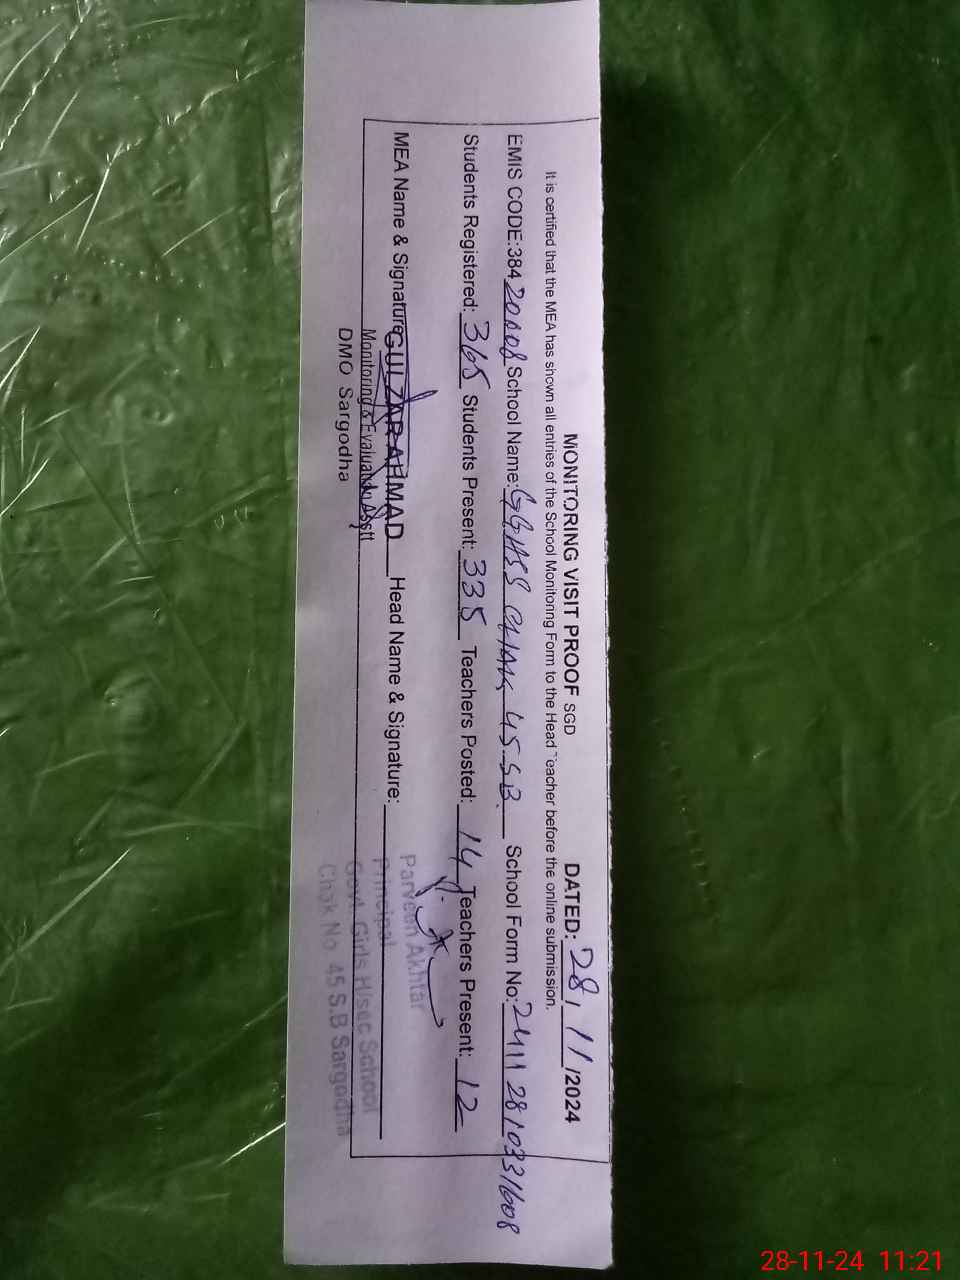 MONITORING VISIT PROOF SGD DATED: 28, 11 /2024
It is certified that the MEA has shown all entries of the School Monitoring Form to the Head Teacher before the online submission.
EMIS CODE:384 20008 School Name: GGHSS CHAK 45-SB. School Form No: 24112810331608
Students Registered: 365 Students Present: 335 Teachers Posted: 14 Teachers Present: 12
MEA Name & Signature GULZAR AHMAD Head Name & Signature:
Monitoring & Evaluation Asstt
DMO Sargodha
Parveen Akhtar
Principal
Govt. Girls H/sec School
Chak No. 45 S.B Sargodha
28-11-24 11:21